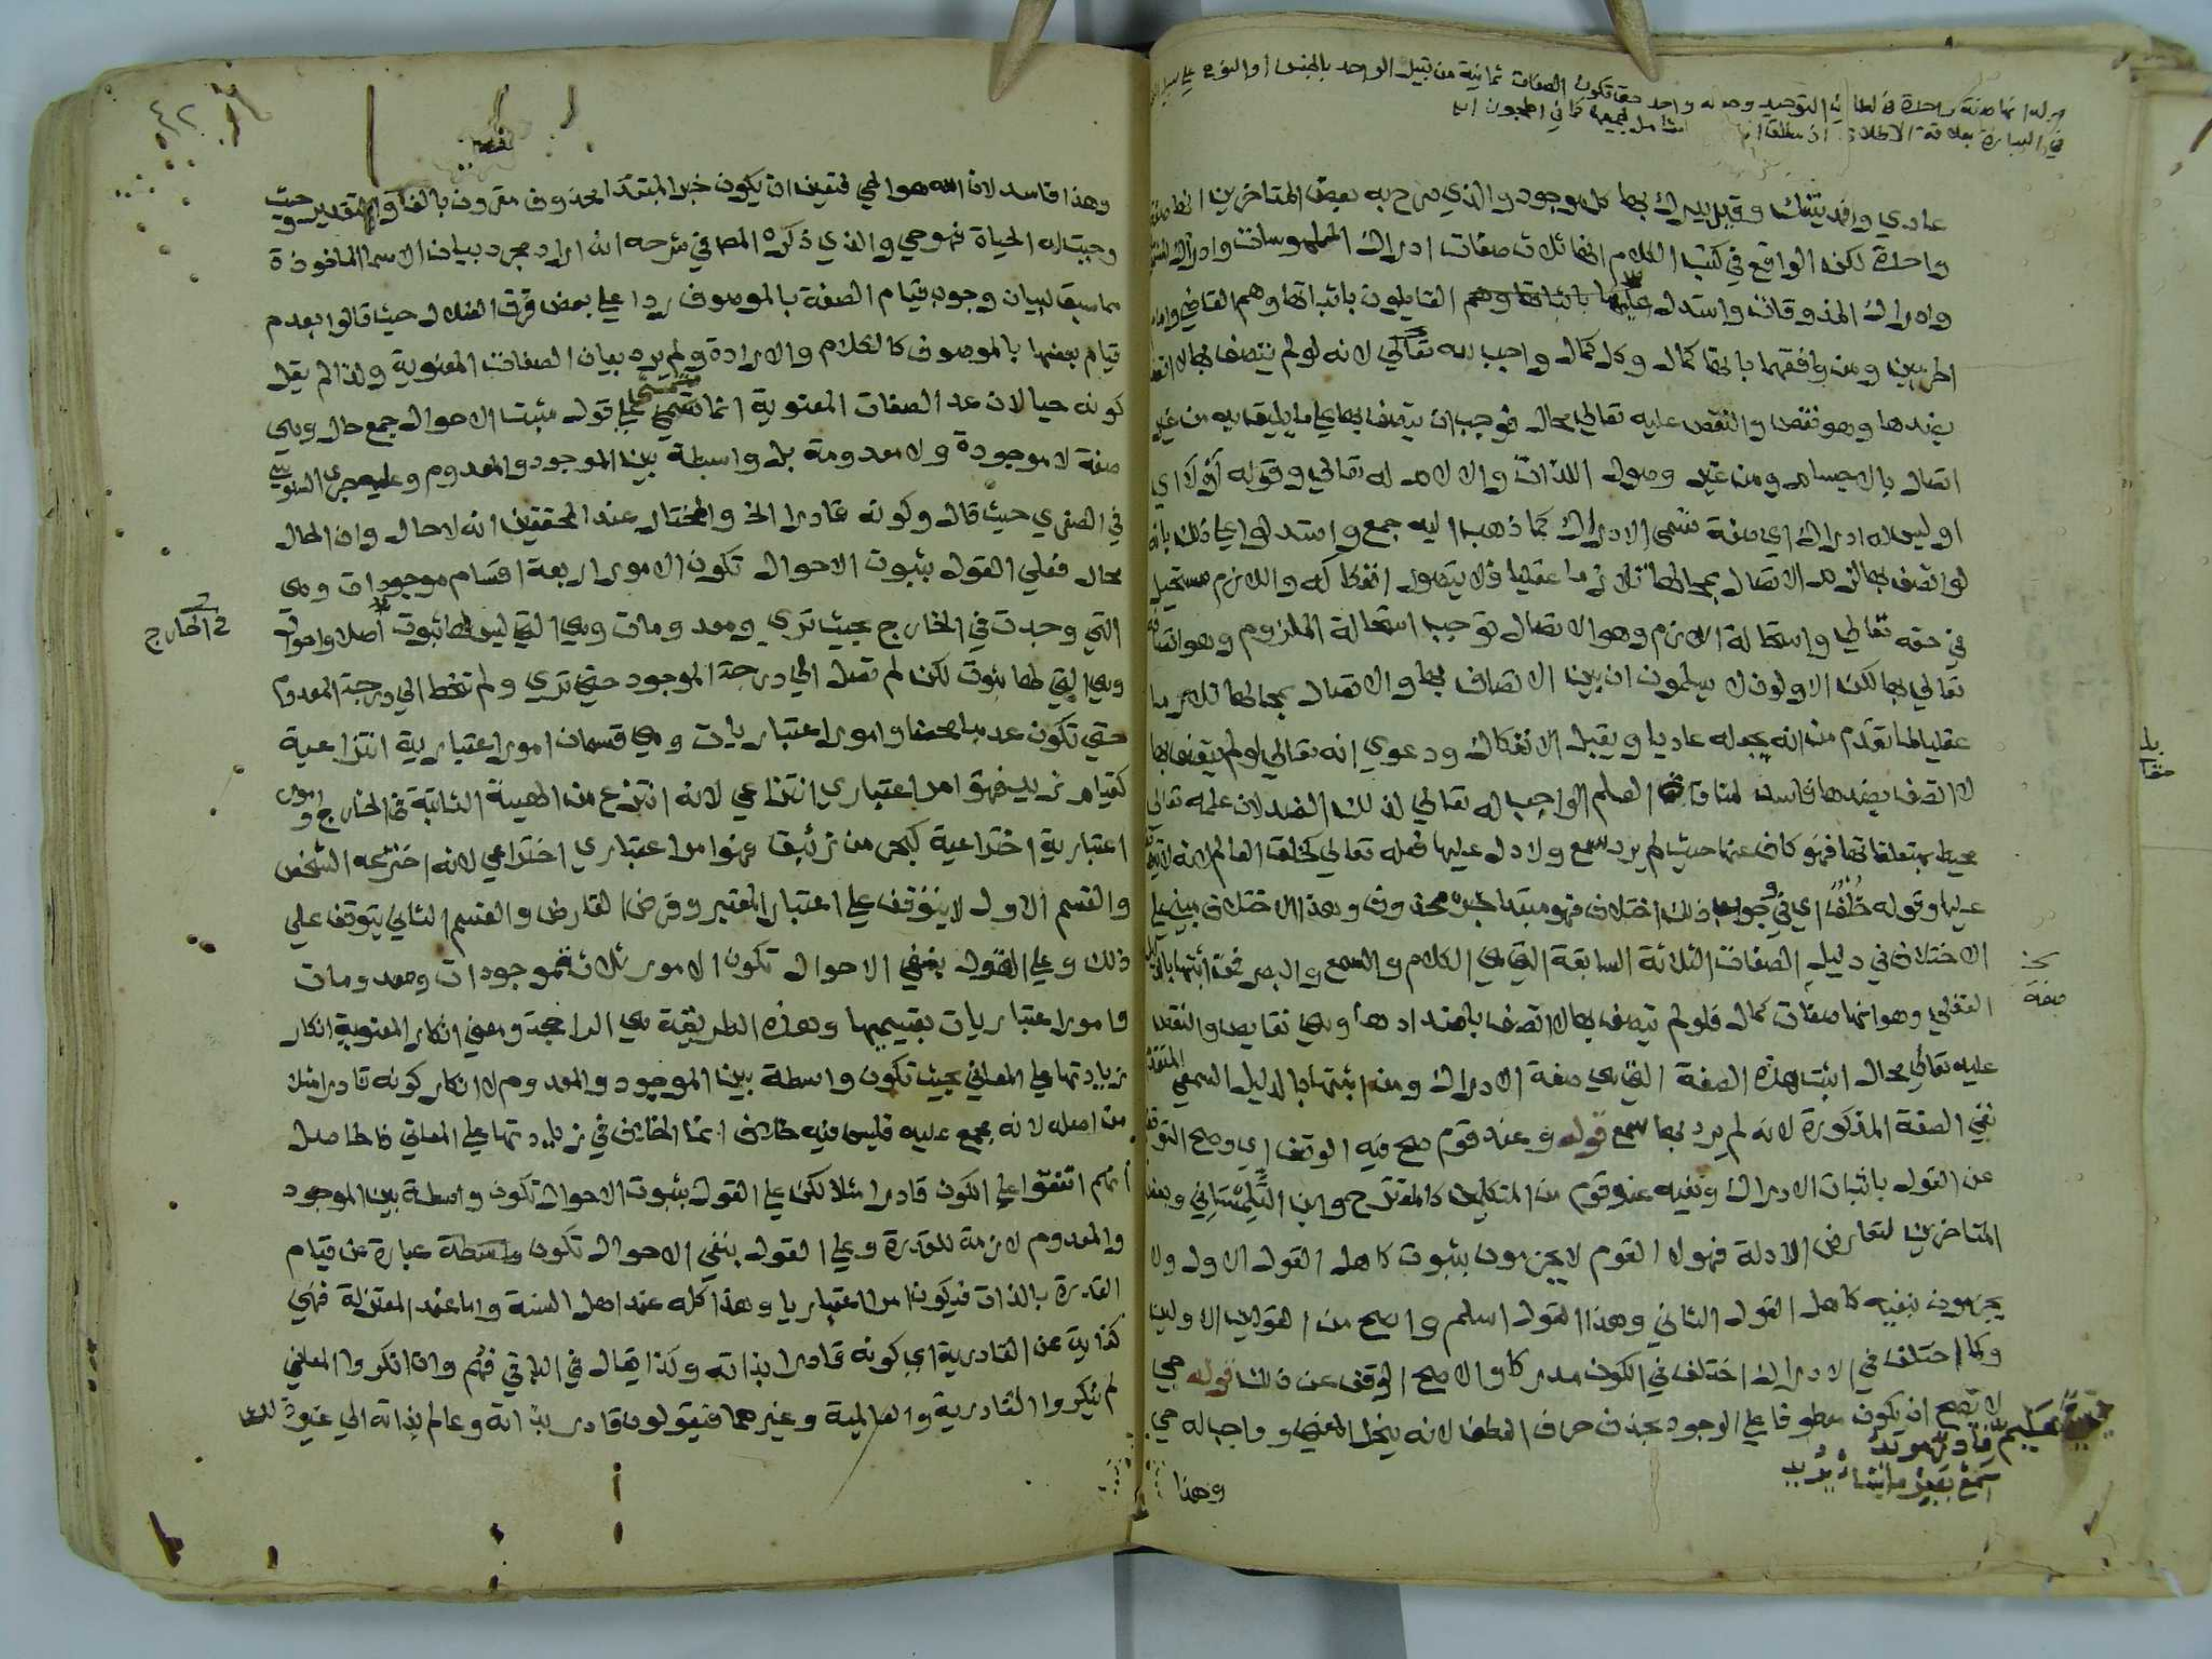 عادي وقد ينفك وقيل يدرك بها كل موجود والذي صرح به بعض المتاخرين انها صفة
واحدة لكن الواقع في كتب الكلام انها ثلاث صفات ادراك الملموسات وادراك المشمومات
وادراك المذوقات واستدل عليها القايلون باثباتها وهم القاضي وامام
الحرمين ومن وافقهما بانها كمال وكل كمال واجب لله تعالي لانه لو لم يتصف بها لاتصف
بضدها وهو نقص والنقص عليه تعالي محال فوجب ان يتصف بها علي ما يليق به من غير
اتصال بالاجسام ومن غير وصول اللذات والالام له تعالي وقوله أوْ لَا اي
اوليس له ادراك اي صفة تسمي الادراك كما ذهب اليه جمع واستدلوا علي ذلك بانه
لو اتصف بها لزم الاتصال بمحالها تلازما عقليا فلا يتصور انفكاكه واللازم مستحيل
في حقه تعالي واستحالة اللازم وهو الاتصال توجب استحالة الملزوم وهو اتصافه
تعالي بها لكن الاولون لا يسلمون ان بين الاتصاف بها والاتصال بمحالها تلازما
عقليا لما تقدم من انه يجعله عاديا ويقبل الانفكاك ودعوي انه تعالي لو لم يتصف بها
لاتصف بضدها فاسدة لمنافاة العلم الواجب له تعالي لذلك الضد لان علمه تعالي
محيط بمتعلقاتها فهو كاف عنها حيث لم يرد سمع ولا دل عليها فعله تعالي كخلقه العالم لانه لا يتوقف
عليها وقوله خُلْفُ اي في جواب ذلك اختلاف فهو مبتدا خبره محذوف وهذا الاختلاف مبني علي
الاختلاف في دليل الصفات الثلاثة السابقة التي هي الكلام والسمع والبصر فمن اثبتها بالدليل
العقلي وهو انها صفات كمال فلو لم يتصف بها لاتصف باضدادها وهي نقايص والنقص
عليه تعالي محال اثبت هذه الصفة التي هي صفة الادراك ومن اثبتها بالدليل السمعي المتقدم
نفي الصفة المذكورة لانه لم يرد بها سمع قوله وعند قوم صح فيه الوقف اي وصح التوقف
عن القول باثبات الادراك ونفيه عند قوم من المتكلمين كالمقترح وابن التِّلِمْسَاني وبعض
المتاخرين لتعارض الادلة فهولا القوم لا يجزمون بثبوته كاهل القول الاول ولا
يجزمون بنفيه كاهل القول الثاني وهذا القول اسلم واصح من القولين الاولين
وكما اختلف في الادراك اختلف في الكون مدركا والاصح الوقف عن ذلك قوله حي
لا يصح ان يكون معطوفا علي الوجود بحذف حرف العطف لانه ينحل المعني وواجب له حي
حيٌّ عليمٌ قادرٌ مريدُ
سَمِعْ بَصِيرٌ ما يشا يُرِيد
وهذا
بلغ
مقا
صفة
وهذا فاسد لان الله هو الحي فتعين ان يكون خبر المبتدا محذوف مقرون بالفا والتقدير وحيث
وجبت له الحياة فهو حي والذي ذكره المص في شرحه انه اراد مجرد بيان الاسما الماخوذة
مما سبق لبيان وجوب قيام الصفة بالموصوف ردا علي بعض فرق الضلال حيث قالوا بعدم
قيام بعضها بالموصوف كالكلام والارادة ولم يرد بيان الصفات المعنوية ولذا لم يقل
كونه حيا لان عد الصفات المعنوية انما يتمشي علي قول مثبت الاحوال جمع حال وهي
صفة لا موجودة ولا معدومة بل واسطة بين الموجود والمعدوم وعليه جري السنوسي
في الصغري حيث قال وكونه قادرا الخ والمختار عند المحققين انه لا حال وان الحال
محال فعلي القول بثبوت الاحوال تكون الامور اربعة اقسام موجودات وهي
التي وجدت في الخارج بحيث تري ومعدومات وهي التي ليس لها ثبوت اصلا واحوال
في الخارج
وهي التي لها ثبوت لكن لم تصل الي درجة الموجود حتي تري ولم تنحط الي درجة المعدوم
حتي تكون عدما محضا وامور اعتباريات وهي قسمان امور اعتبارية انتزاعية
كقيام زيد فهو امر اعتباري انتزاعي لانه انتزع من الهيئة الثابتة في الخارج وامور
اعتبارية اختراعية كبحر من زئبق فهو امر اعتباري اختراعي لانه اخترعه الشخص
والقسم الاول لا يتوقف علي اعتبار المعتبر وفرض الفارض والقسم الثاني يتوقف علي
ذلك وعلي القول بنفي الاحوال تكون الامور ثلاثة موجودات ومعدومات
وامور اعتباريات بقسميها وهذه الطريقة هي الراجحة ومعني انكار المعنوية انكار
زيادتها علي المعاني بحيث تكون واسطة بين الموجود والمعدوم لا انكار كونه قادرا مثلا
من اصله لانه مجمع عليه فليس فيه خلاف انما الخلاف في زيادتها علي المعاني فالحاصل
انهم اتفقوا علي الكون قادرا مثلا لكن علي القول بثبوت الاحوال تكون واسطة بين الموجود
والمعدوم لازمة للقدرة وعلي القول بنفي الاحوال تكون عبارة عن قيام
القدرة بالذات فيكون امرا اعتباريا وهذا كله عند اهل السنة واما عند المعتزلة فهي
كناية عن القادرية اي كونه قادرا بذاته وكذا يقال في الباقي فهم وان انكروا المعاني
لم ينكروا القادرية والعالمية وغيرهما فيقولون قادر بذاته وعالم بذاته الي غير ذلك